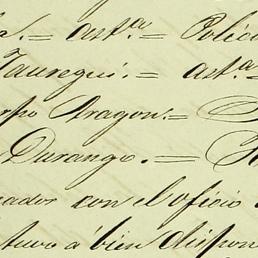 a.= ast.ª = Polici
Jauregui.= ast.ª
rpo Aragon.=
Durango.=
ados con el oficio
tuvo á bien dispon